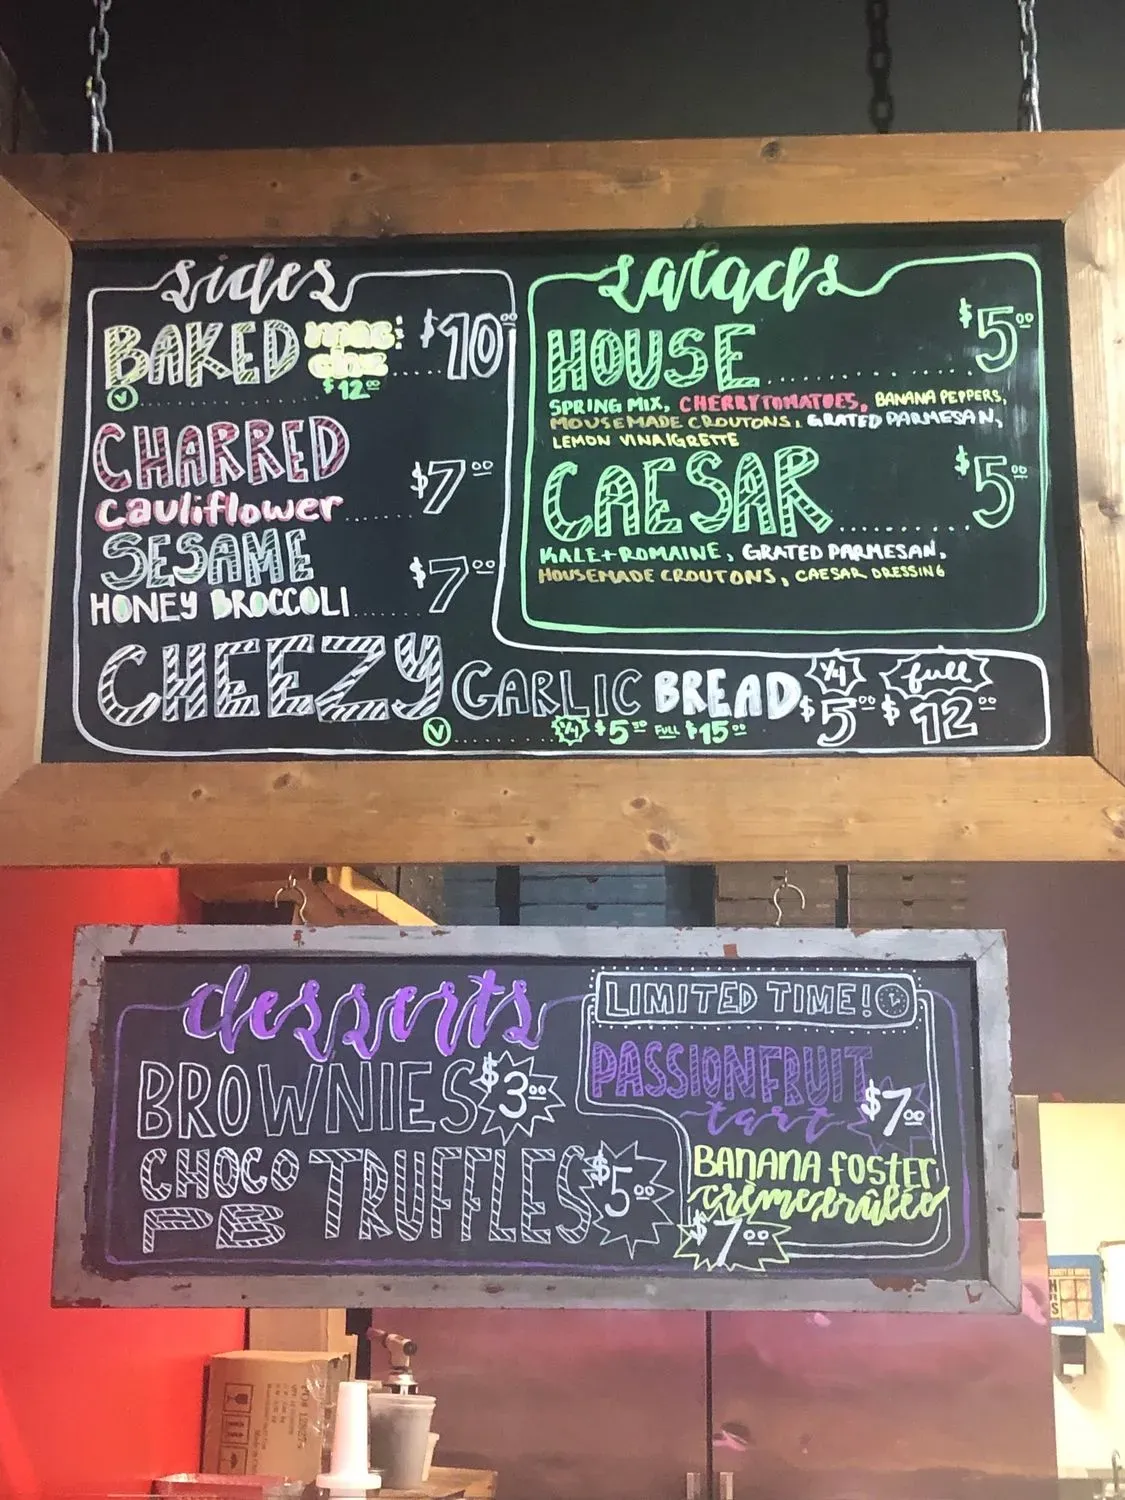 sides
BAKED mac & chz $10.00
V $12.00
CHARRED
cauliflower $7.00
SESAME
HONEY BROCCOLI $7.00
CHEEZY GARLIC BREAD 1/4 $5.00 full $12.00
V 1/4 $5.50 FULL $15.00
salads
HOUSE $5.00
SPRING MIX, CHERRY TOMATOES, BANANA PEPPERS,
HOUSEMADE CROUTONS, GRATED PARMESAN,
LEMON VINAIGRETTE
CAESAR $5.00
KALE + ROMAINE, GRATED PARMESAN,
HOUSEMADE CROUTONS, CAESAR DRESSING
desserts
BROWNIES $3.00
CHOCO PB TRUFFLES $5.00
LIMITED TIME!
PASSIONFRUIT
tart $7.00
BANANA FOSTER
crème brûlée
$7.00